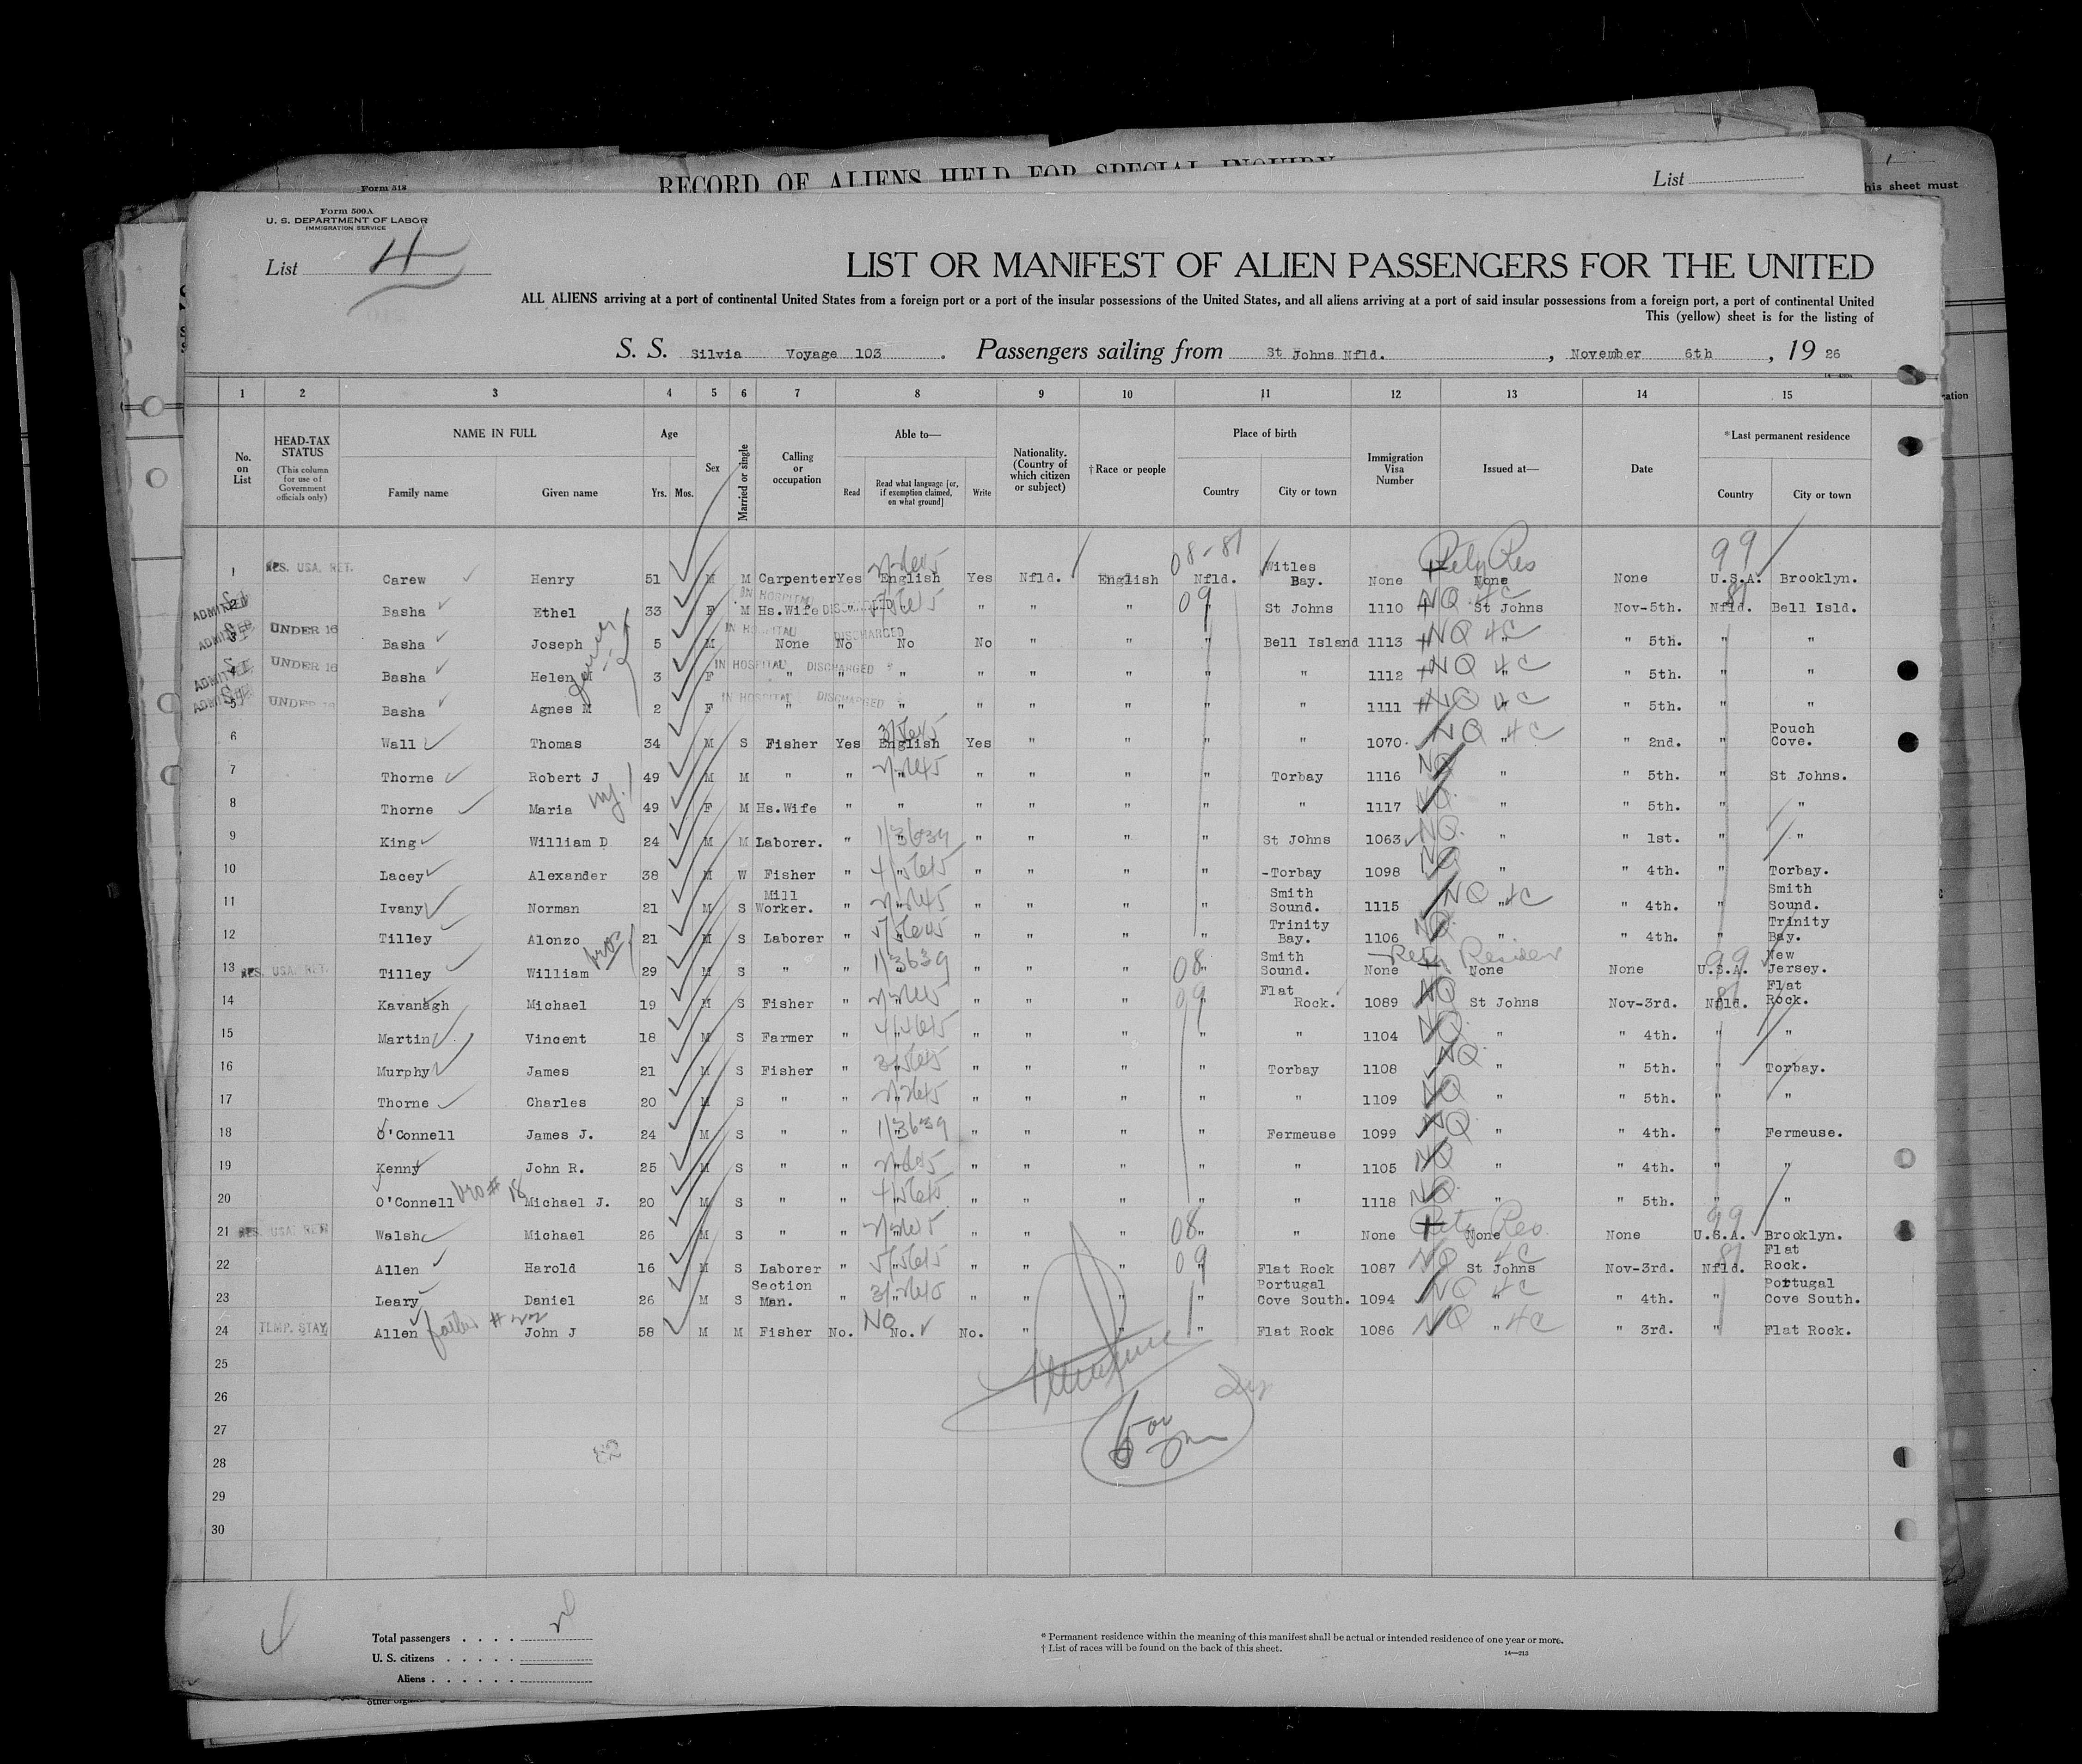 RECORD OF ALIENS HELD FOR SPECIAL INQUIRY
List
his sheet must
Form 518
Form 500A
U. S. DEPARTMENT OF LABOR
IMMIGRATION SERVICE
List 4
LIST OR MANIFEST OF ALIEN PASSENGERS FOR THE UNITED
ALL ALIENS arriving at a port of continental United States from a foreign port or a port of the insular possessions of the United States, and all aliens arriving at a port of said insular possessions from a foreign port, a port of continental United
This (yellow) sheet is for the listing of
S. S. Silvia Voyage 103 . Passengers sailing from St Johns Nfld. , November 6th , 19 26
1 2 3 4 5 6 7 8 9 10 11 12 13 14 15
No. on List
HEAD-TAX STATUS (This column for use of Government officials only)
NAME IN FULL Family name Given name
Age Yrs. Mos.
Sex
Married or single
Calling or occupation
Able to— Read Read what language [or, if exemption claimed, on what ground] Write
Nationality. (Country of which citizen or subject)
†Race or people
Place of birth Country City or town
Immigration Visa Number
Issued at—
Date
*Last permanent residence Country City or town
1 RES. USA. RET. Carew Henry 51 M M Carpenter Yes English Yes Nfld. English 08-81 Nfld. Witles Bay. None Retg Res None None 99 U.S.A. Brooklyn.
2 ADMITTED Basha Ethel 33 F M Hs.Wife IN HOSPITAL DISCHARGED " " " " " 09 " St Johns 1110 NQ 4C St Johns Nov-5th. 81 Nfld. Bell Isld.
3 ADMITTED UNDER 16 Basha Joseph 5 M IN HOSPITAL DISCHARGED None No No No " " " Bell Island 1113 NQ 4C " " 5th. " "
4 ADMITTED UNDER 16 Basha Helen M 3 F IN HOSPITAL DISCHARGED " " " " " " " " 1112 NQ 4C " " 5th. " "
5 ADMITTED UNDER 16 Basha Agnes M 2 F IN HOSPITAL DISCHARGED " " " " " " " " 1111 NQ 4C " " 5th. " "
6 Wall Thomas 34 M S Fisher Yes English Yes " " " " 1070 NQ 4C " " 2nd. " Pouch Cove.
7 Thorne Robert J 49 M M " " " " " " " Torbay 1116 NQ " " 5th. " St Johns.
8 Thorne Maria 49 F M Hs.Wife " " " " " " " 1117 NQ " " 5th. " "
9 King William D 24 M M Laborer. " " " " " " St Johns 1063 NQ " " 1st. " "
10 Lacey Alexander 38 M W Fisher " " " " " " -Torbay 1098 NQ " " 4th. " Torbay.
11 Ivany Norman 21 M S Mill Worker. " " " " " " Smith Sound. 1115 NQ 4C " " 4th. " Smith Sound.
12 Tilley Alonzo 21 M S Laborer " " " " " " Trinity Bay. 1106 NQ " " 4th. " Trinity Bay.
13 RES. USA. RET. Tilley William 29 M S " " " " " " 08 " Smith Sound. None None None 99 U.S.A. New Jersey.
14 Kavanagh Michael 19 M S Fisher " " " " " 09 " Flat Rock. 1089 NQ St Johns Nov-3rd. 81 Nfld. Flat Rock.
15 Martin Vincent 18 M S Farmer " " " " " " " 1104 NQ " " 4th. " "
16 Murphy James 21 M S Fisher " " " " " " Torbay 1108 NQ " " 5th. " Torbay.
17 Thorne Charles 20 M S " " " " " " " " 1109 NQ " " 5th. " "
18 O'Connell James J. 24 M S " " " " " " " Fermeuse 1099 NQ " " 4th. " Fermeuse.
19 Kenny John R. 25 M S " " " " " " " " 1105 NQ " " 4th. " "
20 O'Connell bro # 18 Michael J. 20 M S " " " " " " " " 1118 NQ " " 5th. " "
21 RES. USA. RET. Walsh Michael 26 M S " " " " " " 08 " " None Retg Res. None None 99 U.S.A. Brooklyn.
22 Allen Harold 16 M S Laborer " " " " " 09 " Flat Rock 1087 NQ 4C St Johns Nov-3rd. 81 Nfld. Flat Rock.
23 Leary Daniel 26 M S Section Man. " " " " " " Portugal Cove South. 1094 NQ 4C " " 4th. " Portugal Cove South.
24 TEMP. STAY Allen father # 22 John J 58 M M Fisher No. No No. No. " " " Flat Rock 1086 NQ 4C " " 3rd. " Flat Rock.
25
26
27
28
29
30
Total passengers . . . .
U. S. citizens . . . . .
Aliens . . . . . .
* Permanent residence within the meaning of this manifest shall be actual or intended residence of one year or more.
† List of races will be found on the back of this sheet.
14—213